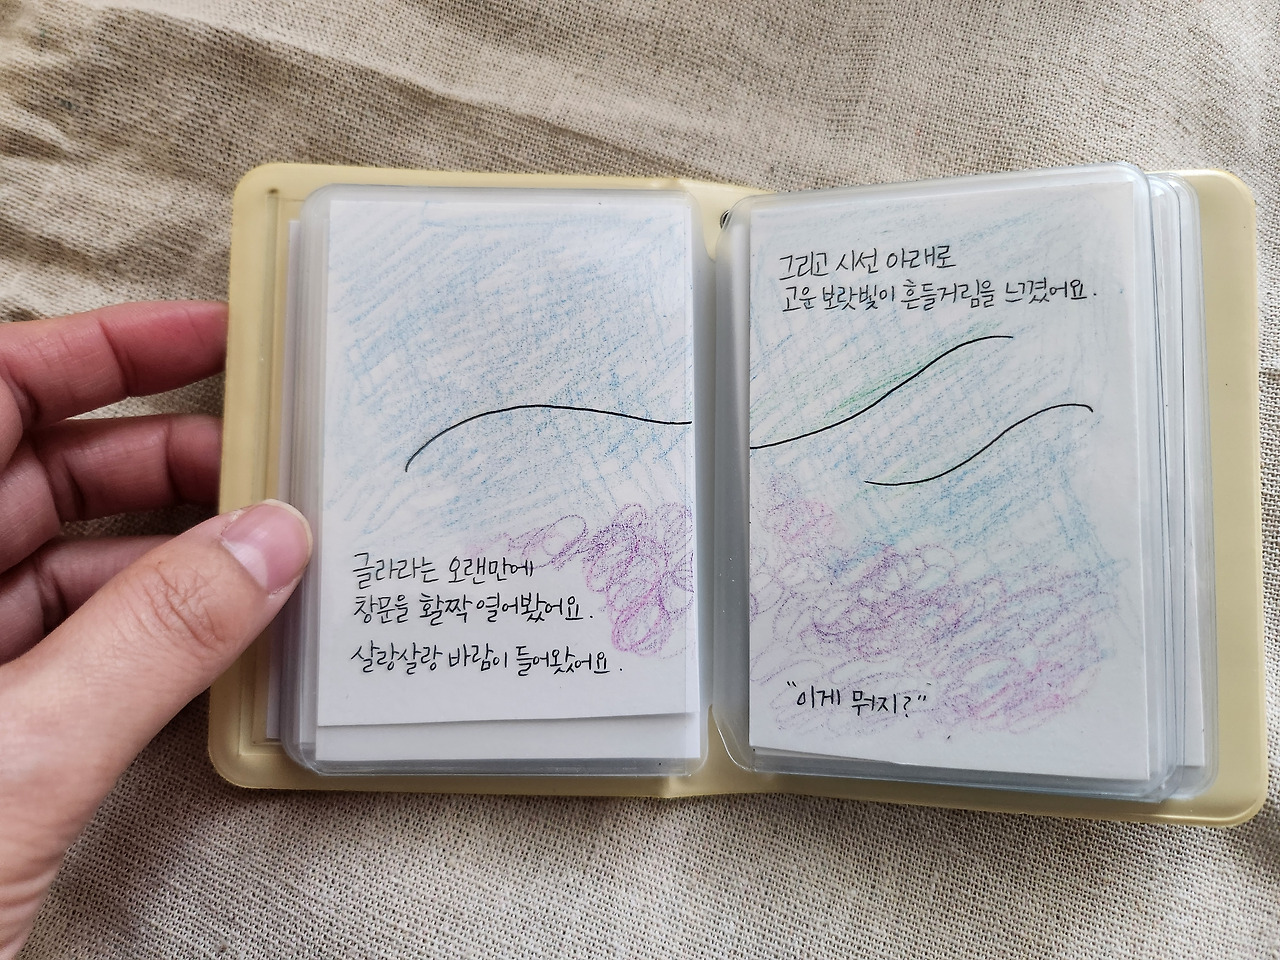 글라라는 오랜만에
창문을 활짝 열어봤어요.
살랑살랑 바람이 들어왔어요.
그리고 시선 아래로
고운 보랏빛이 흔들거림을 느꼈어요.
"이게 뭐지?"